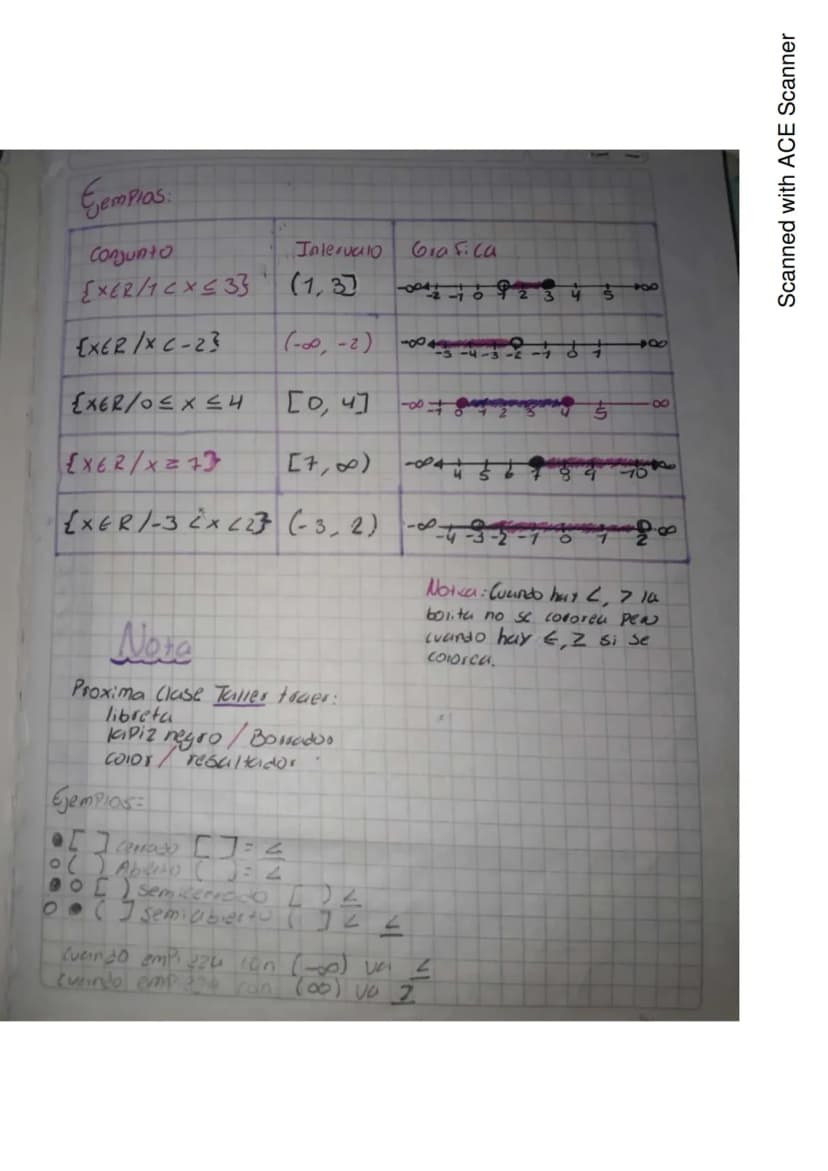 Ejemplos:
Conjunto Intervalo Grafica
{x∈R/1<x≤3} (1, 3] -∞ -2 -1 0 1 2 3 4 5 +∞
{x∈R/x<-2} (-∞, -2) -∞ -5 -4 -3 -2 -1 0 1 +∞
{x∈R/0≤x≤4 [0, 4] -∞ -1 0 1 2 3 4 5 ∞
{x∈R/x≥7} [7, ∞) -∞ 4 5 6 7 8 9 10 ∞
{x∈R/-3<x<2} (-3, 2) -∞ -4 -3 -2 -1 0 1 2 ∞
Notica: Cuando hay <, > la
bolita no se colorea pero
cuando hay ≤, ≥ si se
colorea.
Nota
Proxima Clase Taller traer:
libreta
lapiz negro / Borrador
color / resaltador
Ejemplos:
● [ ] cerrado [ ] = ≤
○ ( ) Abierto ( ) = <
● ○ [ ) semicerrado [ ) <
○ ● ( ] semiabierto ( ] < ≤
Cuando empieza con (-∞) va ≤
Cuando empieza con (∞) va ≥
Scanned with ACE Scanner